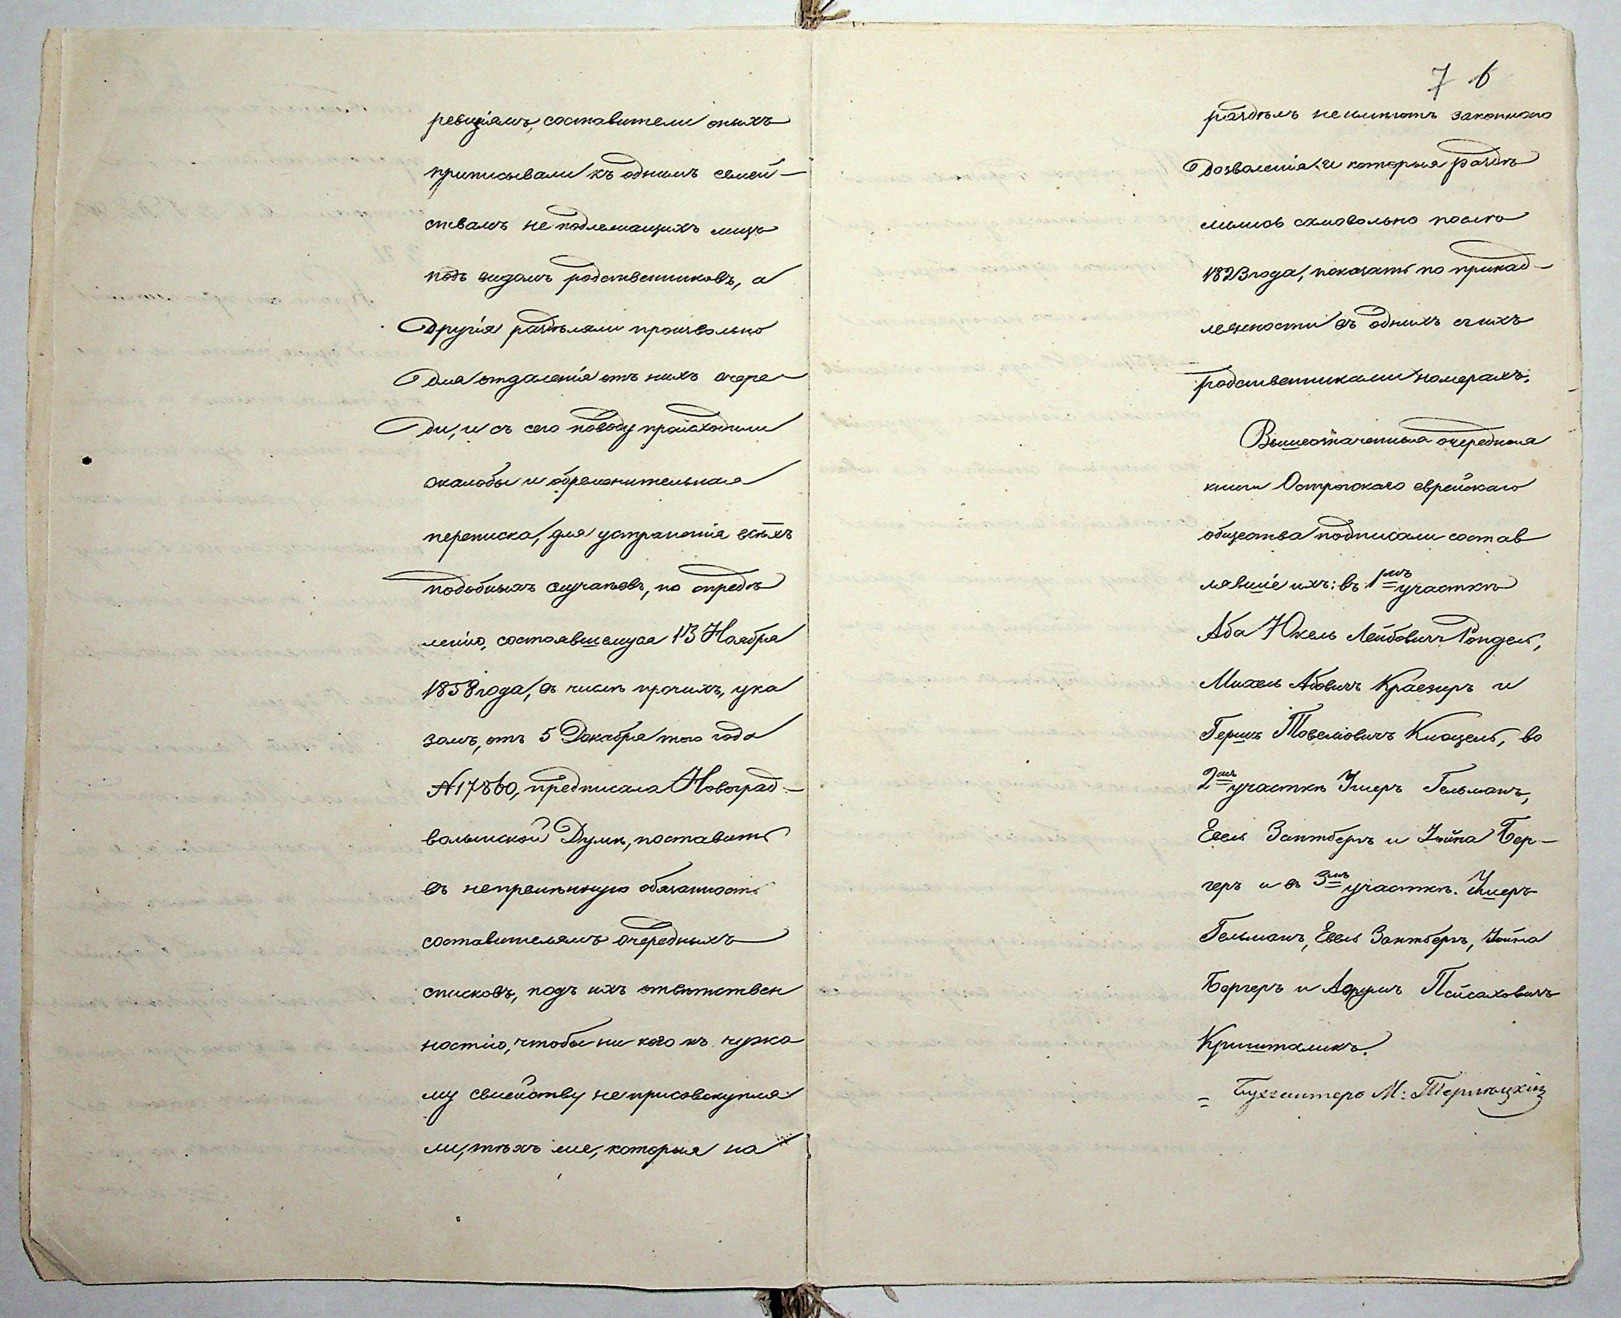 ревизіямъ, составители оныхъ
приписывали къ однимъ семей-
ствамъ не подлежащихъ лицъ
подъ видомъ родственниковъ, а
другія раздѣляли произвольно
для отдаленія отъ нихъ очере-
ди, и съ сего поводу происходили
жалобы и обременительная
переписка, для устраненія всѣхъ
подобныхъ случаевъ, по опредѣ
ленію, состоявшемуся 13 Ноября
1858 года, въ числѣ прочихъ, ука
зомъ, отъ 5 Декабря того года
№ 17860, предписала Новоград-
волынской Думѣ, поставить
въ непремѣнную обязанность
составителямъ очередныхъ
списковъ, подъ ихъ отвѣтствен
ностію, чтобы ни кого къ чужо
му семейству неприсовокупля
ли, тѣхъ же, которыя на
7 6
раздѣлъ неимѣютъ законного
дозволенія и которыя раздѣ
лились самовольно послѣ
1823 года, показать по принад-
лежности въ однихъ съихъ
родственниками номерахъ.
Вышеозначенныя очередныя
книги Острогскаго еврейскаго
общества подписали состав
лявшіе ихъ: въ 1мъ участкѣ
Аба Юкель Лейбовичъ
Михель Абовичъ и
Гершъ во
2мъ участкѣ Гельманъ,
Евель и Бер-
геръ и въ 3мъ участкѣ.
Гельманъ, Евель
Бергеръ и Пейсаховичъ
Кришталикъ.
Бухгалтеръ М: